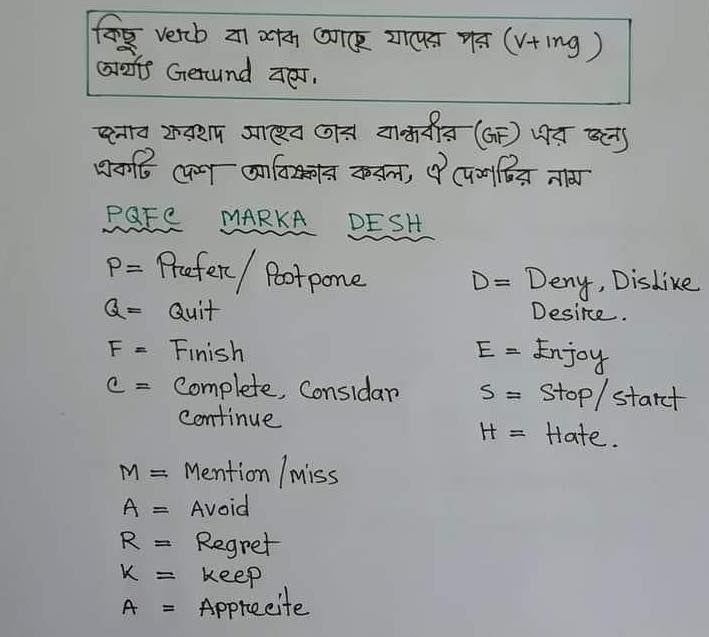 কিছু verb বা শব্দ আছে যাদের পর (v+ing)
অর্থাৎ Gerund বসে.
জনাব ফরহাদ সাহেব তার বান্ধবীর (GF) এর জন্য
একটি দেশ আবিষ্কার করল, ঐ দেশটির নাম
PQFC MARKA DESH
P= Prefer/ Postpone
Q= Quit
F = Finish
C = Complete, Considar
Continue
M = Mention/miss
A = Avoid
R = Regret
K = keep
A = Apprecite
D= Deny, Dislike
Desire.
E = Enjoy
S = Stop/start
H = Hate.